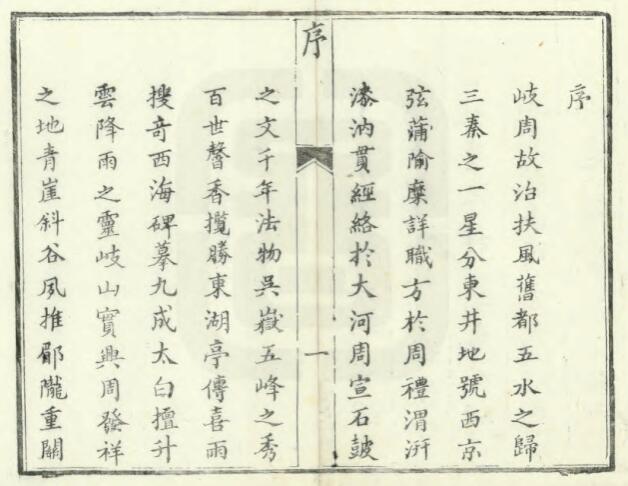 序
岐周故治扶風舊都五水之歸
三秦之一星分東井地號西京
弦蒲隃糜詳職方於周禮渭汧
漆汭貫經絡於大河周宣石鼓
序
一
之文千年法物吳嶽五峰之秀
百世馨香攬勝東湖亭傳喜雨
搜奇西海碑摹九成太白擅升
雲降雨之靈岐山實興周發祥
之地青崖斜谷夙推郿隴重關